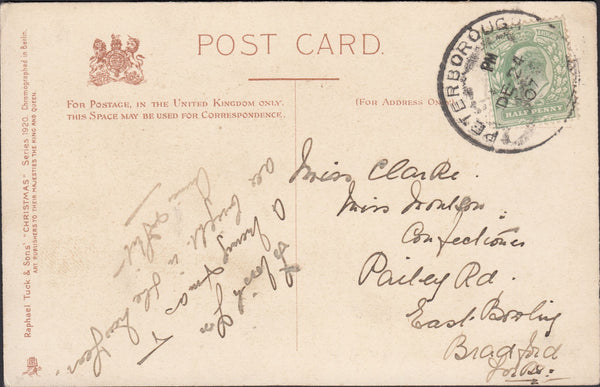 POST CARD.
FOR POSTAGE, IN THE UNITED KINGDOM ONLY,
THIS SPACE MAY BE USED FOR CORRESPONDENCE.
(FOR ADDRESS ON
Raphael Tuck & Sons' "CHRISTMAS" Series 1920. Chromographed in Berlin.
ART PUBLISHERS TO THEIR MAJESTIES THE KING AND QUEEN.
PETERBOROUGH
PM
DE 24
HALF PENNY
to wish you
a Xmas &
all in the New Year
Miss Clarke.
Miss
Confectioner
Pailey Rd.
East Bowling
Bradford
Yorks: